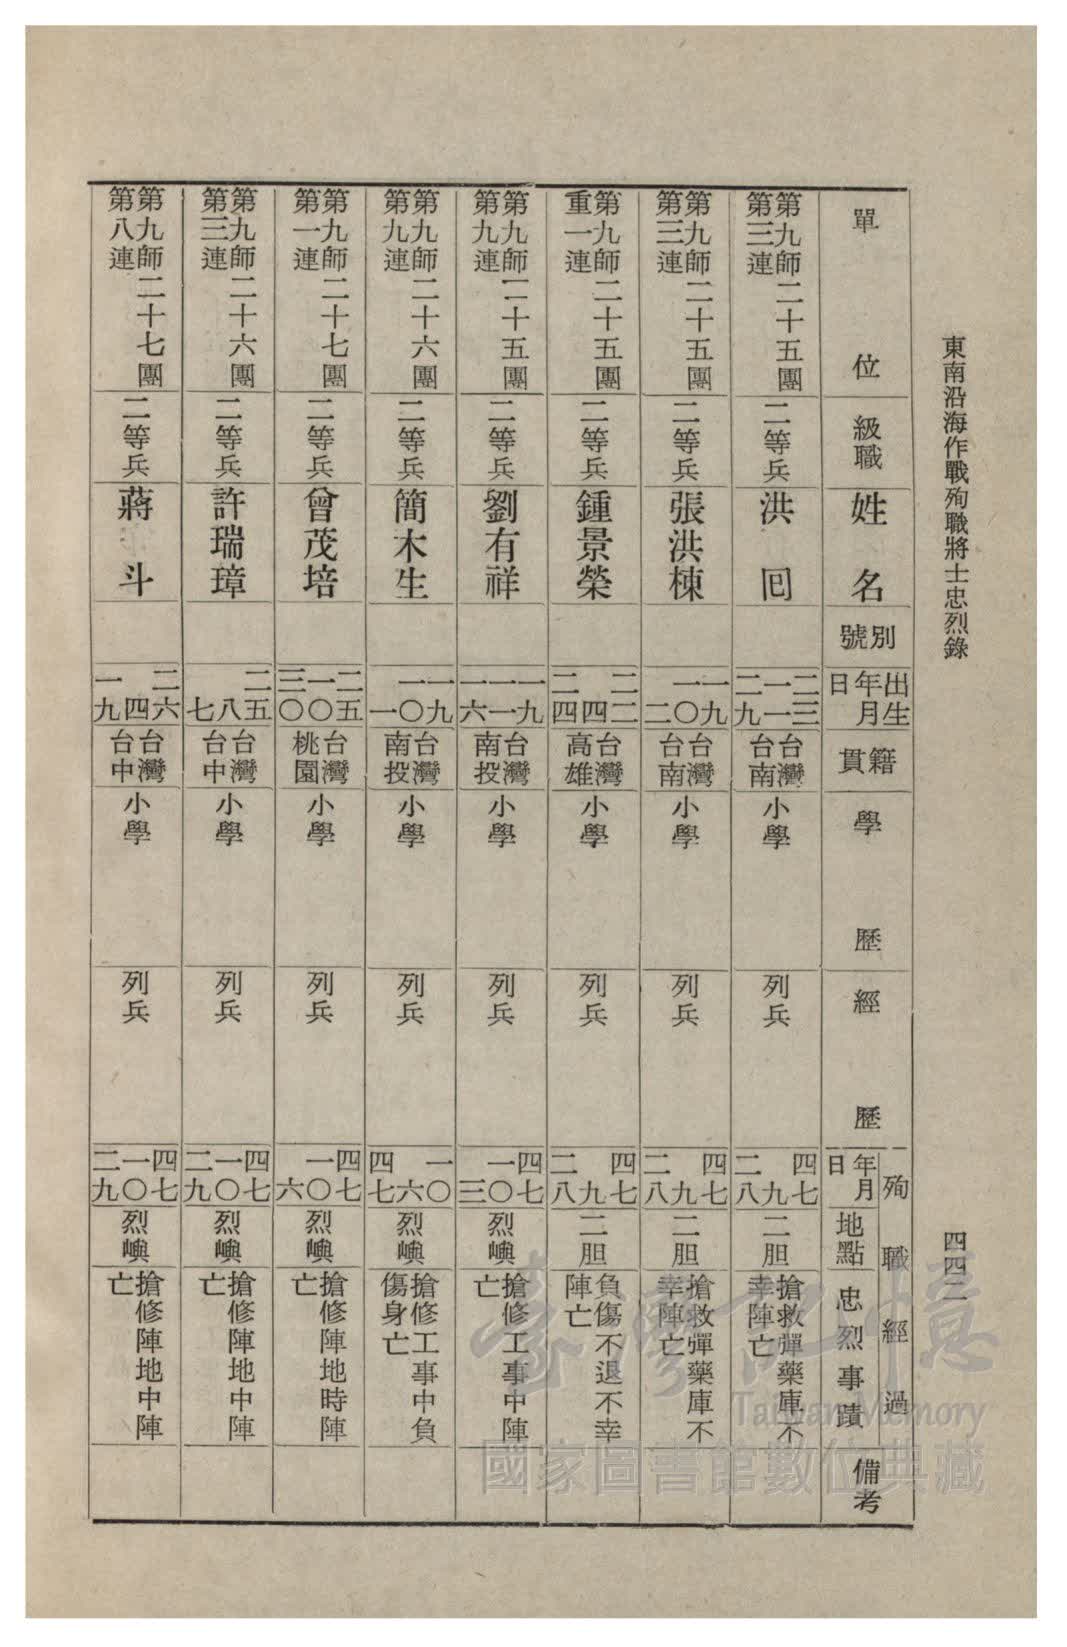 東南沿海作戰殉職將士忠烈錄
四四二
單位
級職
姓名
別號
出生
年月
日
籍貫
學歷
經歷
殉職經過
年月
日
地點
忠烈事蹟
備考
第九師二十五團
第三連
二等兵
洪囘
二三
一一
二九
台灣
台南
小學
列兵
四七
九
二八
二胆
搶救彈藥庫不
幸陣亡
第九師二十五團
第三連
二等兵
張洪棟
一九
一〇
二
台灣
台南
小學
列兵
四七
九
二八
二胆
搶救彈藥庫不
幸陣亡
第九師二十五團
重一連
二等兵
鍾景榮
二二
四
二四
台灣
高雄
小學
列兵
四七
九
二八
二胆
負傷不退不幸
陣亡
第九師二十五團
第九連
二等兵
劉有祥
一九
一一
一六
台灣
南投
小學
列兵
四七
一〇
三
烈嶼
搶修工事中陣
亡
第九師二十六團
第九連
二等兵
簡木生
一九
一〇
一
台灣
南投
小學
列兵
一〇
六
四七
烈嶼
搶修工事中負
傷身亡
第九師二十七團
第一連
二等兵
曾茂培
二五
一〇
三〇
台灣
桃園
小學
列兵
四七
一〇
六
烈嶼
搶修陣地時陣
亡
第九師二十六團
第三連
二等兵
許瑞璋
二五
八
七
台灣
台中
小學
列兵
四七
一〇
二九
烈嶼
搶修陣地中陣
亡
第九師二十七團
第八連
二等兵
蔣斗
二六
四
一九
台灣
台中
小學
列兵
四七
一〇
二九
烈嶼
搶修陣地中陣
亡
臺灣記憶
Taiwan Memory
國家圖書館數位典藏